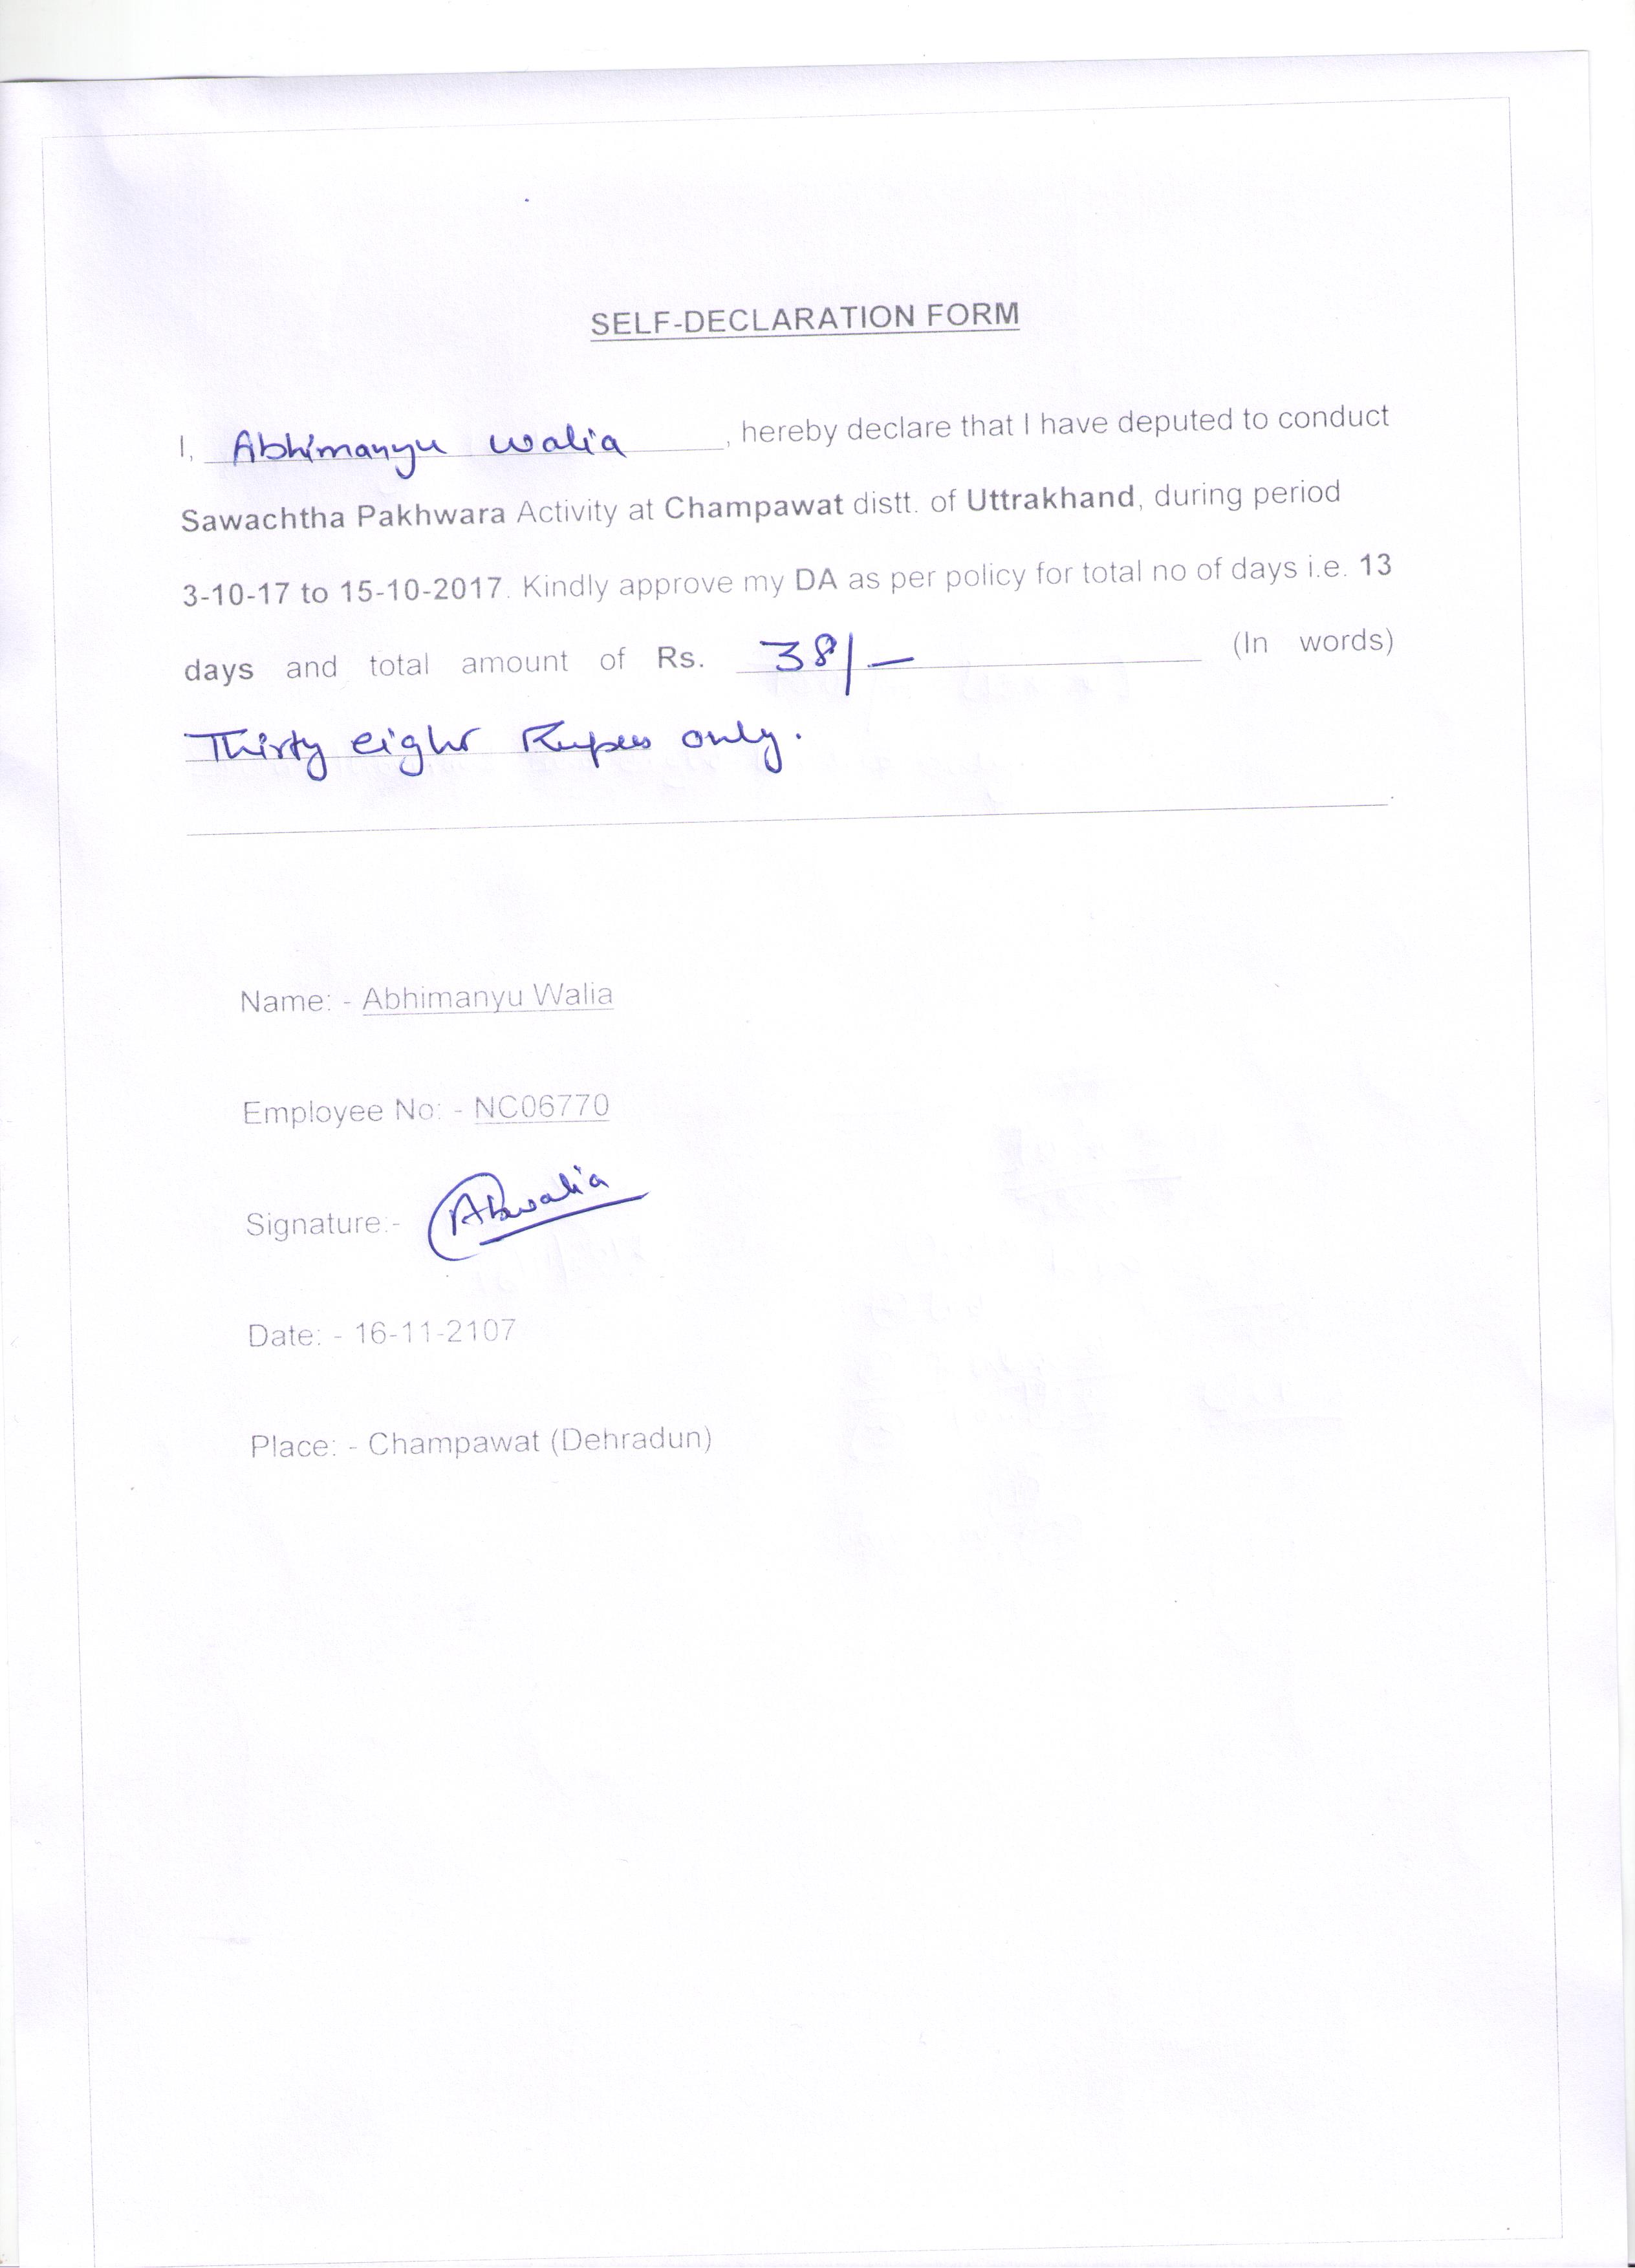 SELF-DECLARATION FORM
I, Abhimanyu Walia, hereby declare that I have deputed to conduct
Sawachtha Pakhwara Activity at Champawat distt. of Uttrakhand, during period
3-10-17 to 15-10-2017. Kindly approve my DA as per policy for total no of days i.e. 13
days and total amount of Rs. 38/- (In words)
Thirty eight Rupees only.
Name: - Abhimanyu Walia
Employee No: - NC06770
Signature:- Abwalia
Date: - 16-11-2107
Place: - Champawat (Dehradun)